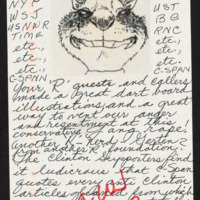 NYP
WSJ
USNWR
TIME
etc.,
etc.,
etc.,
C-SPAN
UST
BB
RNC
etc.,
etc.,
etc.
C-SPAN
Your 'R' guests and callers
made a great dart board
illustrations, and a great
way to vent our anger
and resentment at this
conservative gang rape!
Another
from another
The Clinton supporters find
it ludicrous that C-Span
quotes every anti Clinton
articles
which